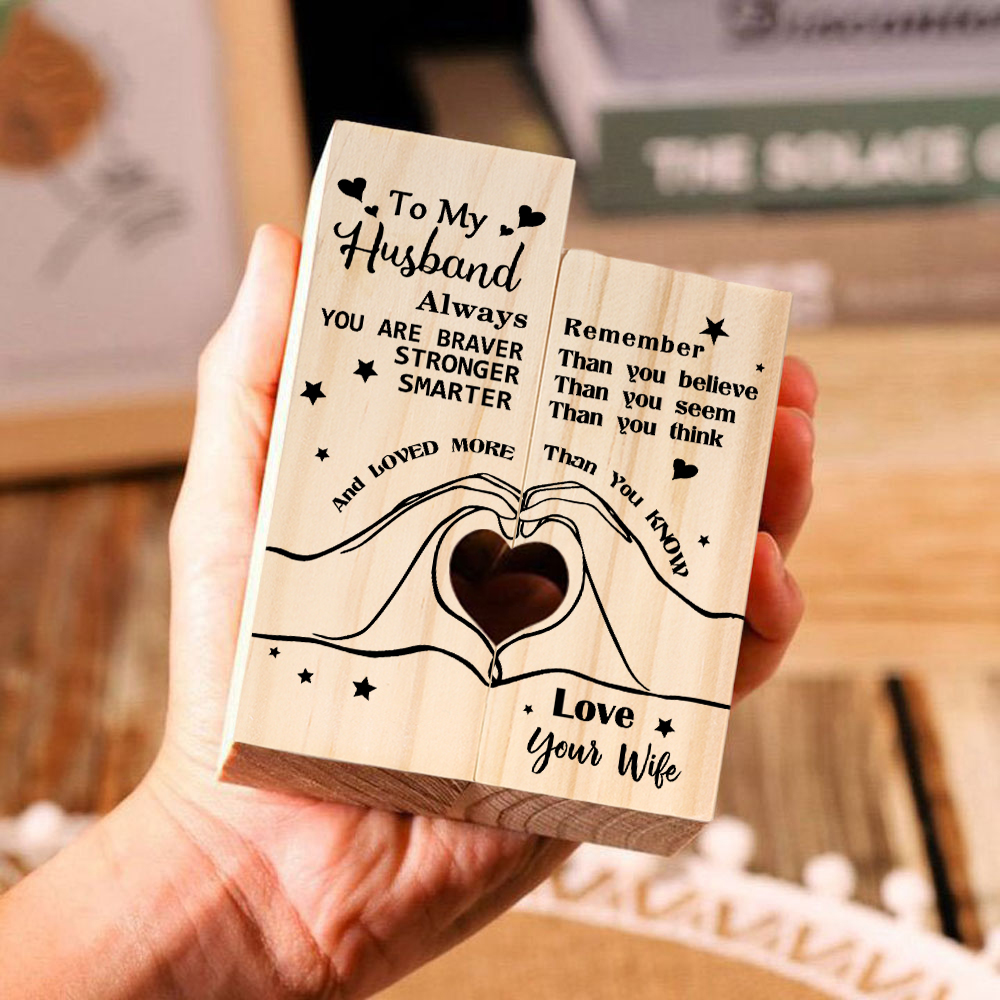 To My
Husband
Always Remember
YOU ARE BRAVER Than you believe
STRONGER Than you seem
SMARTER Than you think
And LOVED MORE Than You KNOW
Love
Your Wife
THE SOLACE